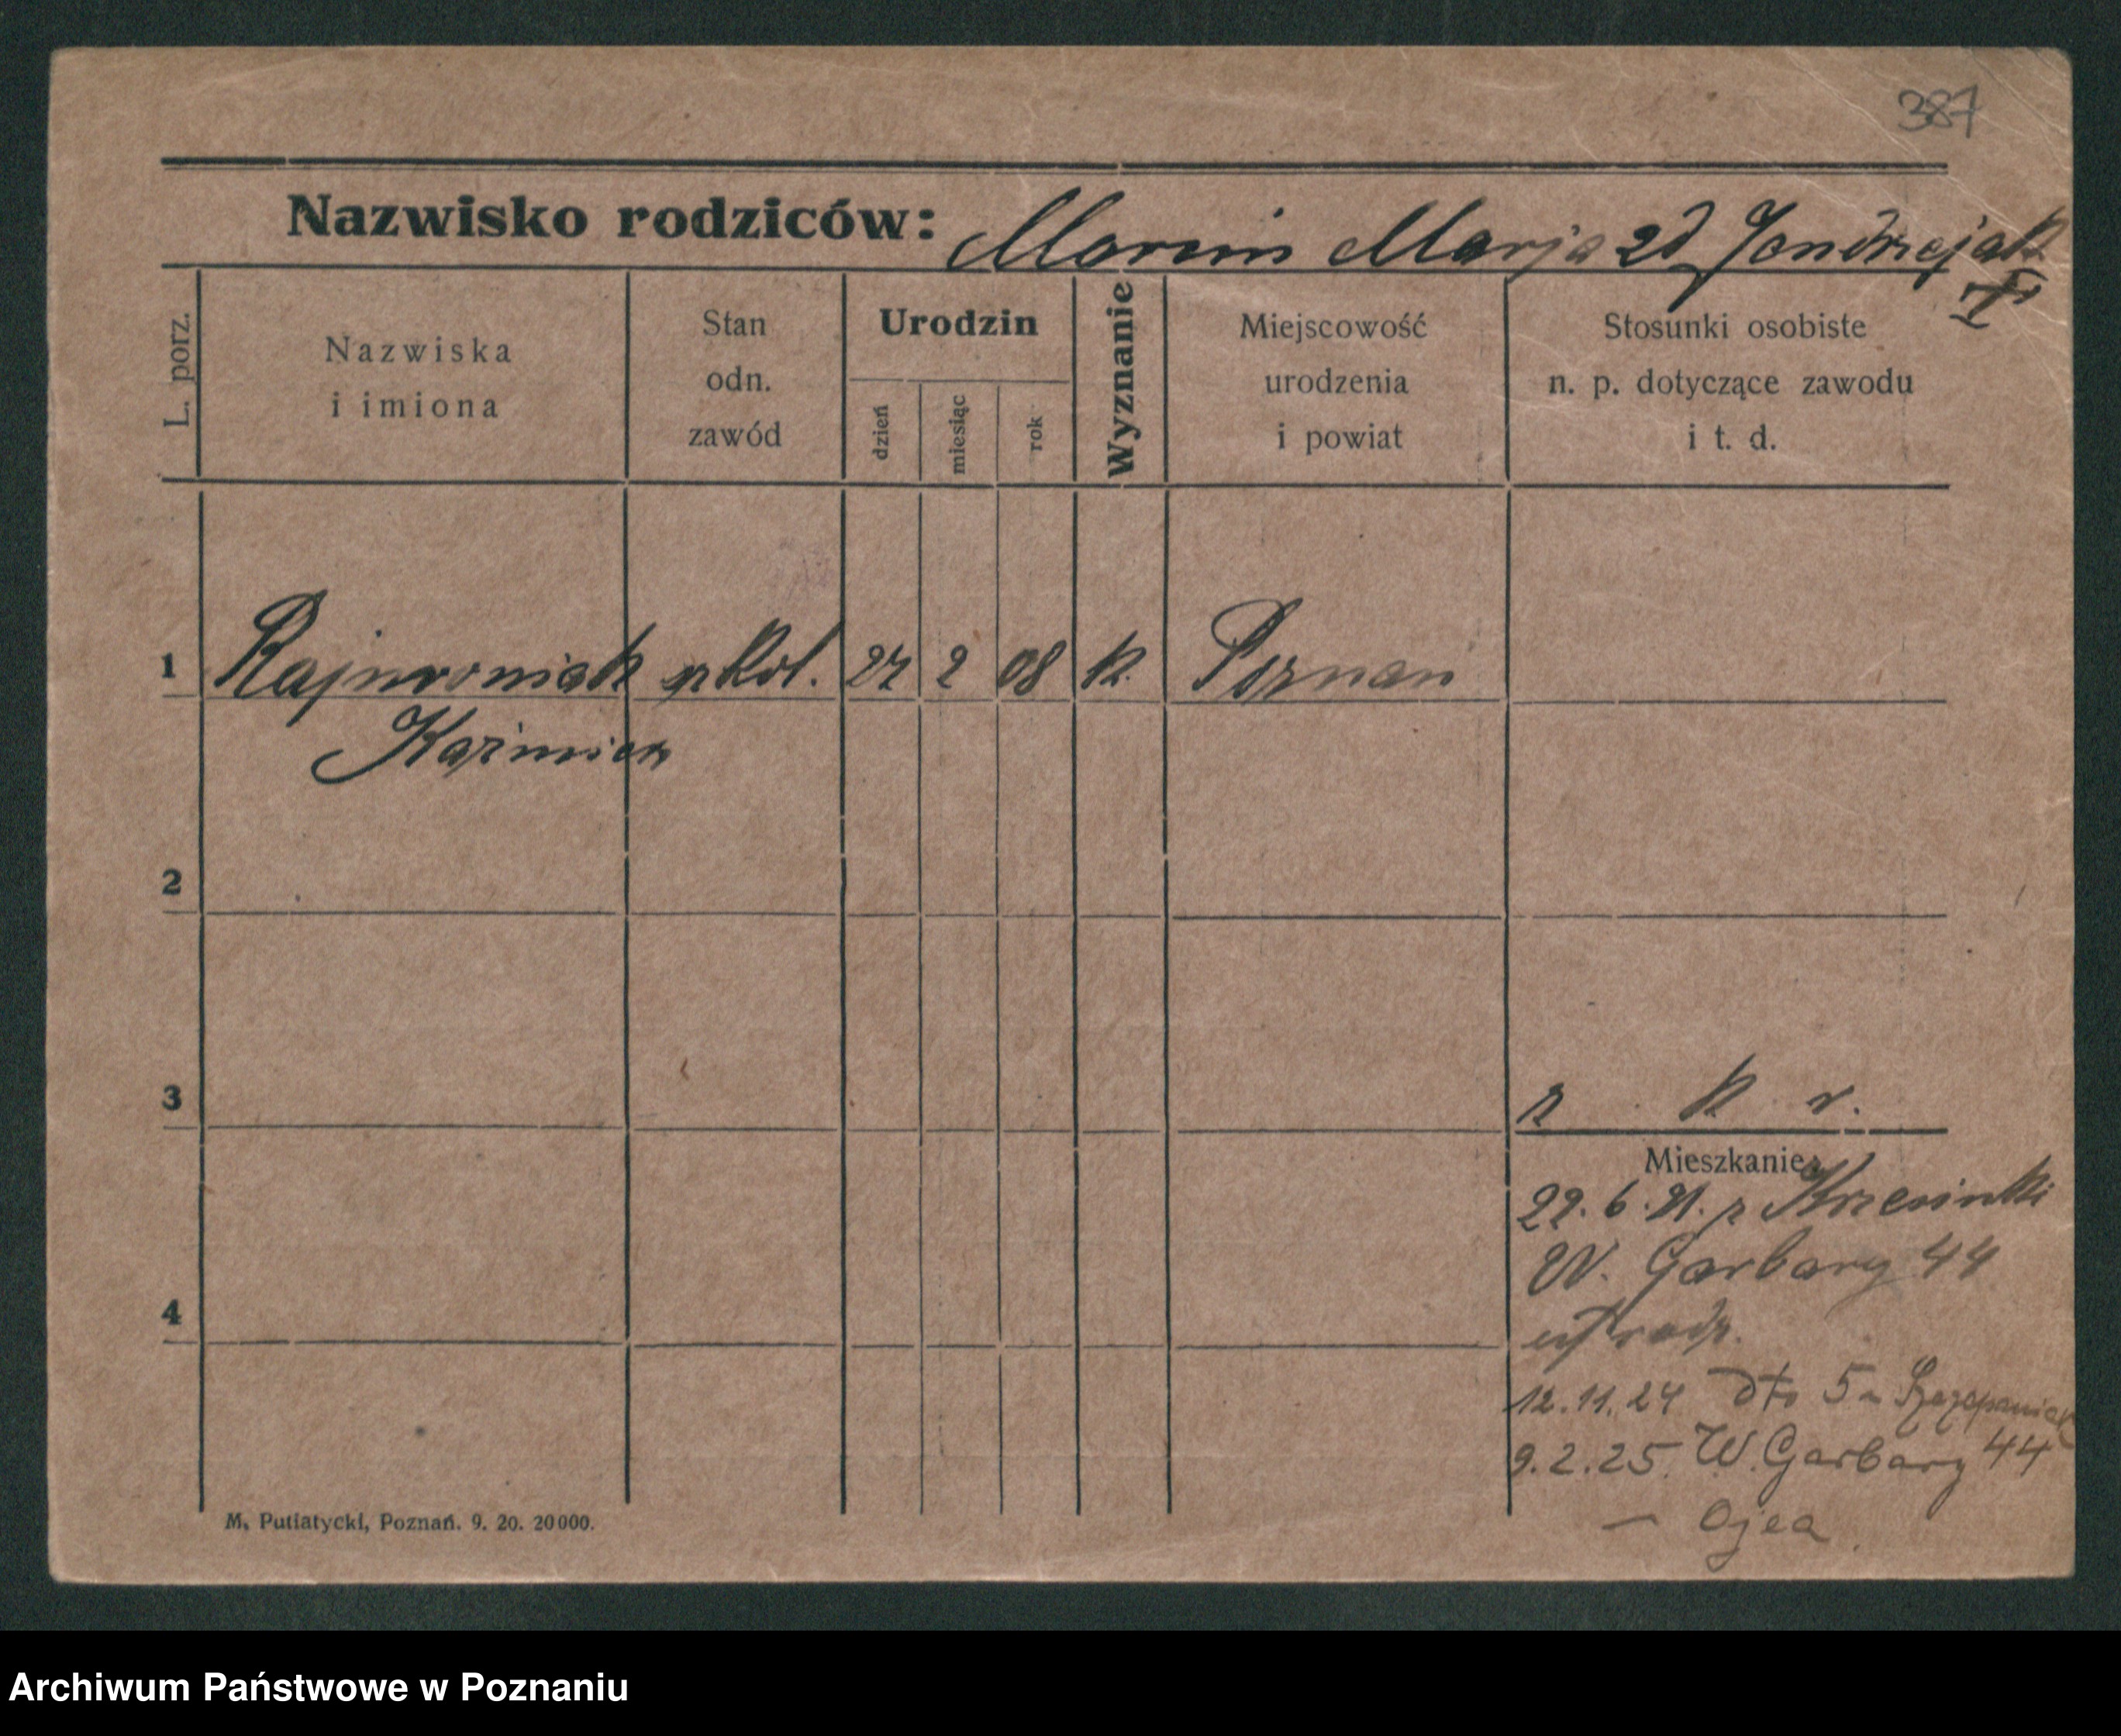 387
Nazwisko rodziców: Marcin Marja zd Jendrzejak
L. porz.
Nazwiska
i imiona
Stan
odn.
zawód
Urodzin
dzień
miesiąc
rok
Wyznanie
Miejscowość
urodzenia
i powiat
Stosunki osobiste
n. p. dotyczące zawodu
i t. d.
1 Rajnroniak szkol. 27 2 08 k. Poznań
Kaźmierz
2
3
k r.
Mieszkanie:
22. 6. 21. z Krzesinki
W. Garbary 44
rodz.
4
12. 11. 24 dto 5 - Szczepaniak
9. 2. 25. W. Garbary 44
- Ojca
M. Putiatycki, Poznań. 9. 20. 20000.
Archiwum Państwowe w Poznaniu